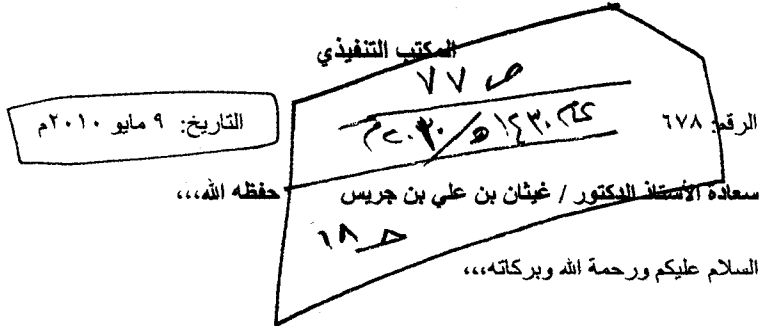 المكتب التنفيذي
ص ٧٧
١٤٣٠هـ /
الرقم: ٦٧٨
التاريخ: ٩ مايو ٢٠١٠م
سعادة الأستاذ الدكتور / غيثان بن علي بن جريس حفظه الله،،،
٦٨
السلام عليكم ورحمة الله وبركاته،،،